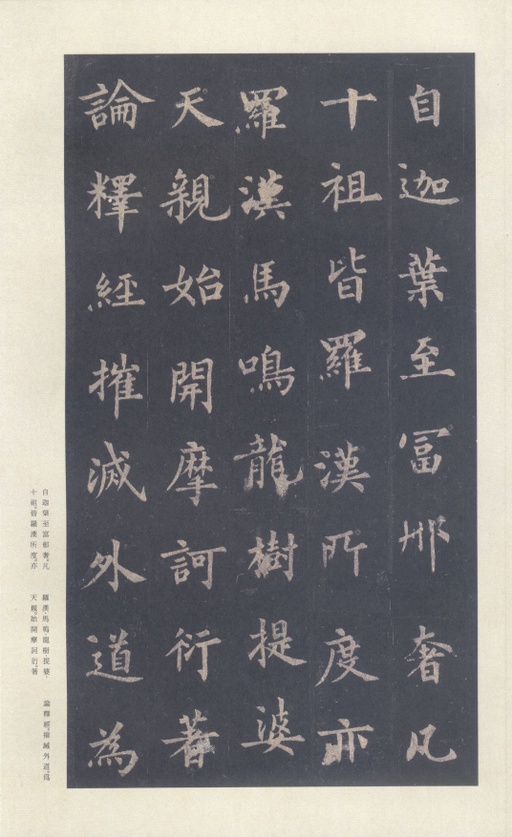 自迦葉至冨那奢凡
十祖皆羅漢所度亦
羅漢馬鳴龍樹提婆
天親始開摩訶衍著
論釋經摧滅外道為
自迦葉至富那奢、凡
十祖、皆羅漢所度、亦
羅漢、馬鳴、龍樹提婆、
天親、始開摩訶衍、著
論釋經、摧滅外道、爲